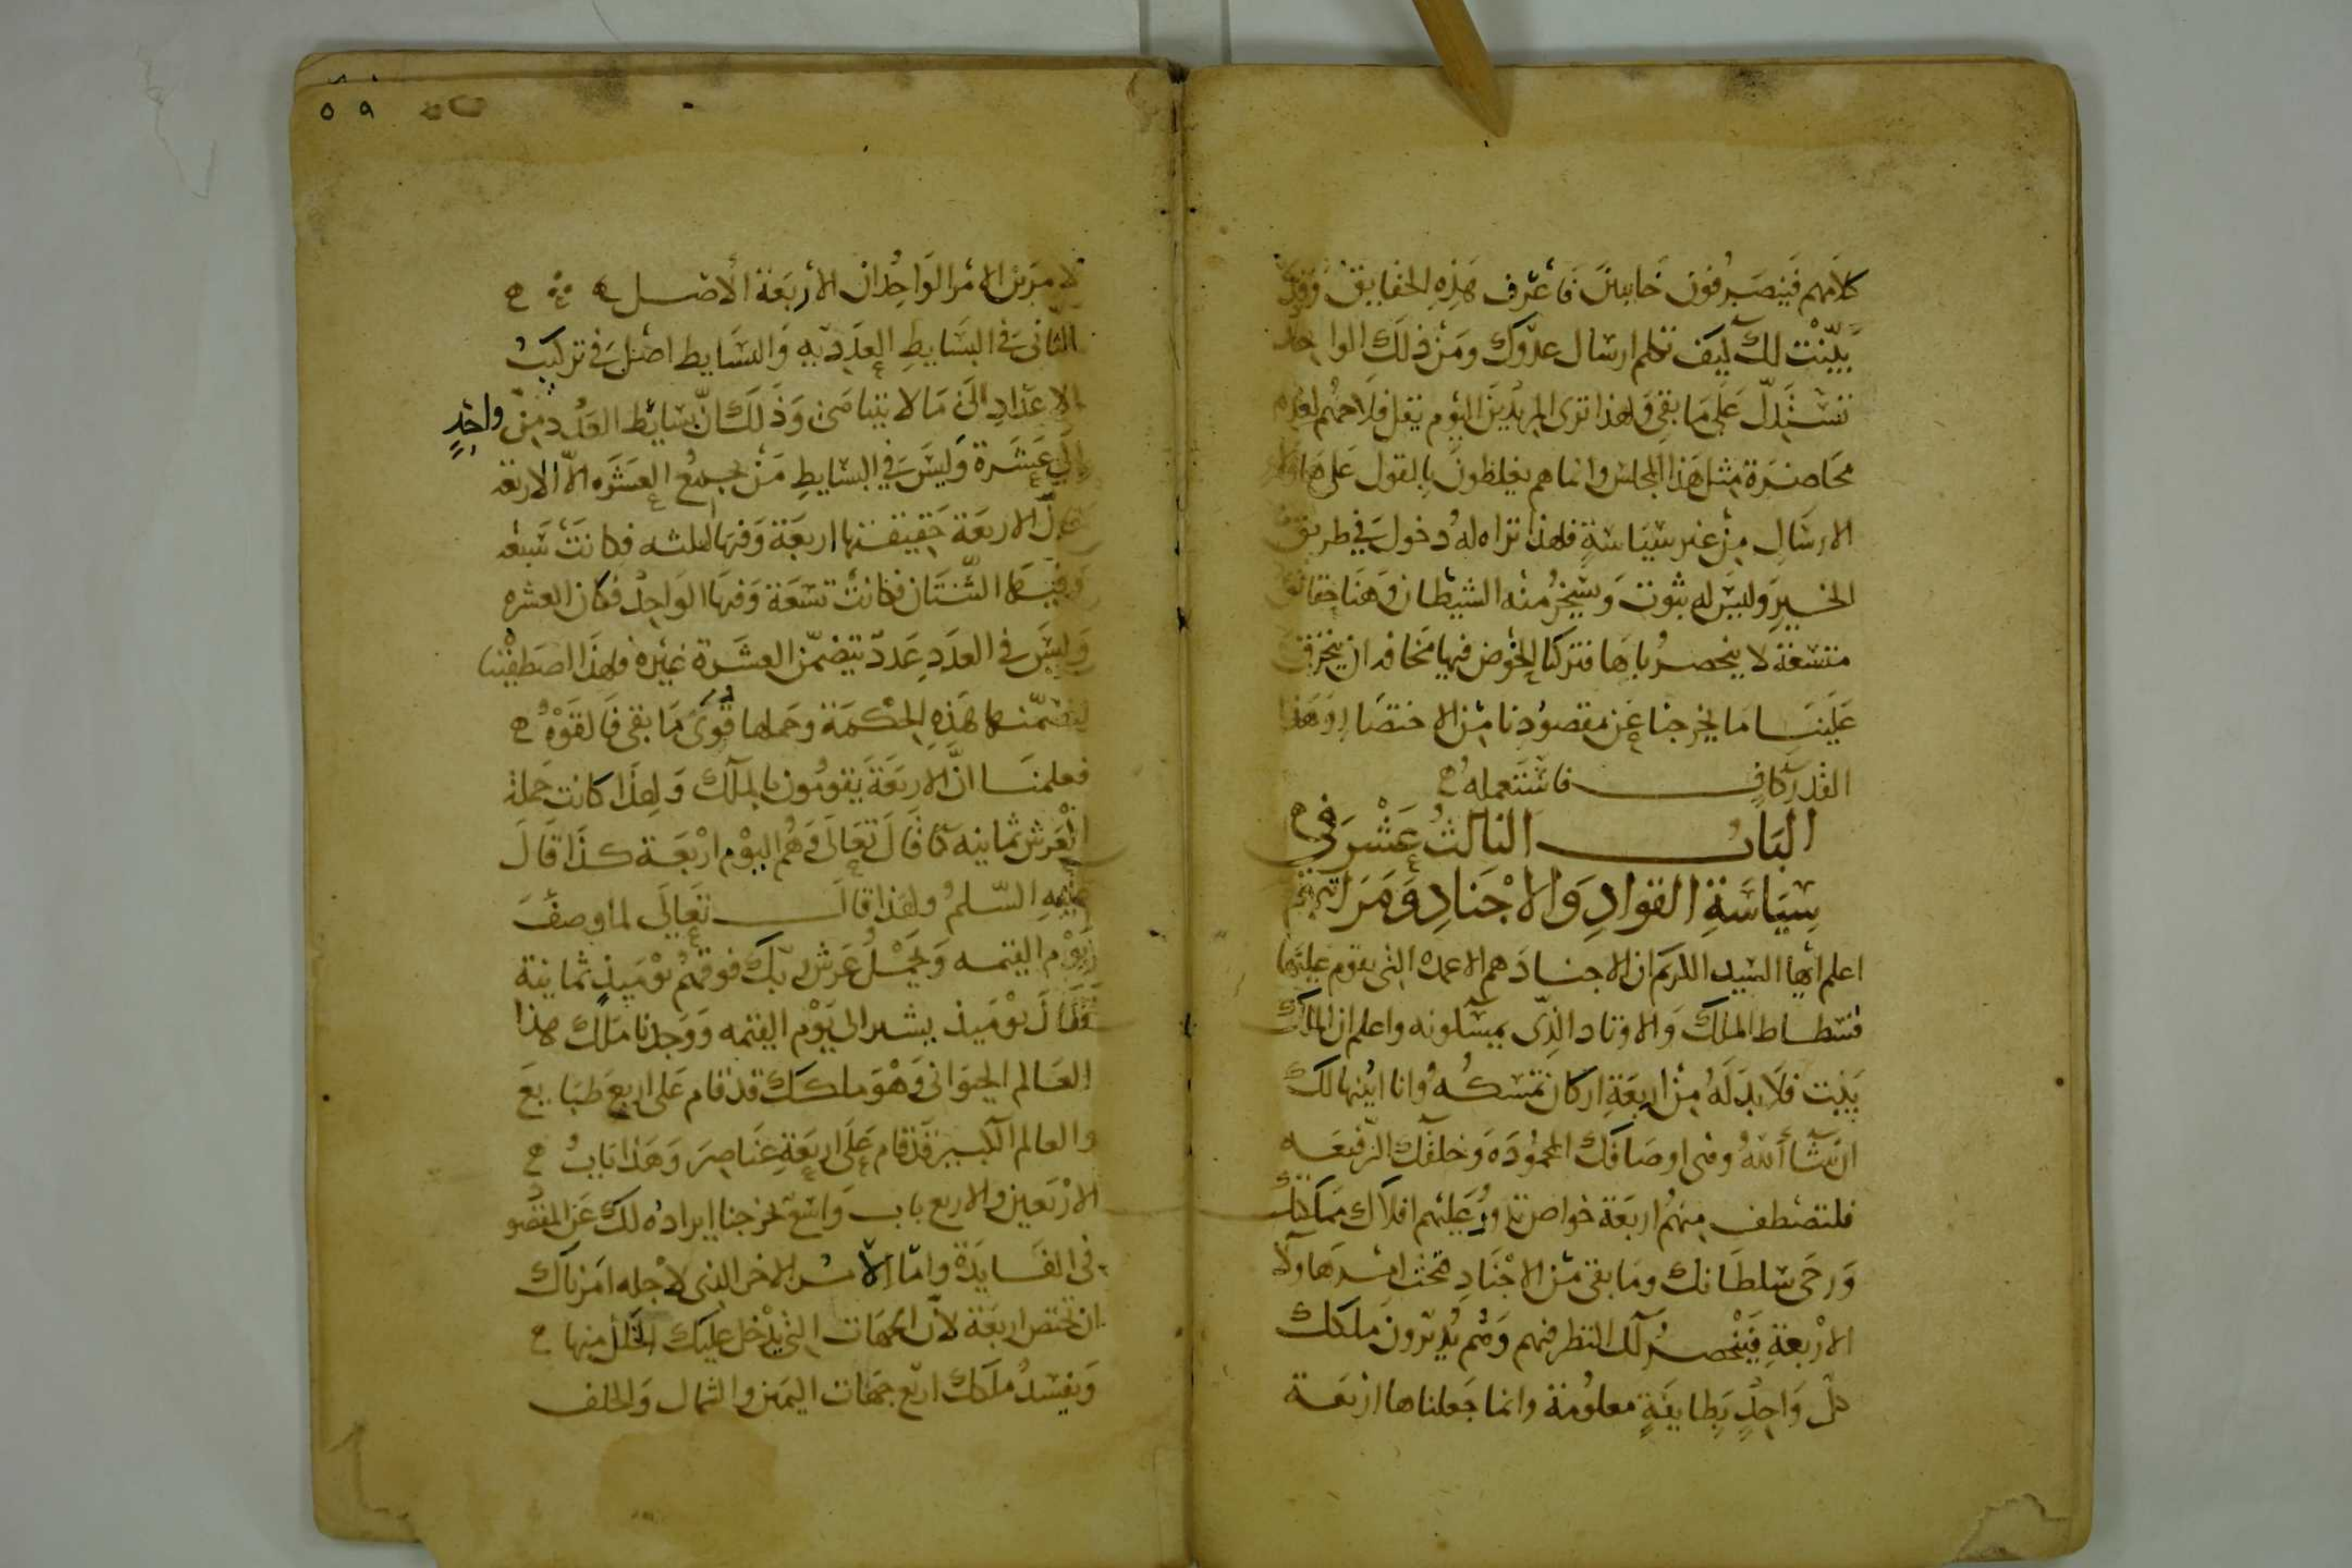 كلامهم فينصرفون خايبين فاعرف هذه الحقايق وقد
بيّنت لك كيف تكلم ارسال عدوّك ومن ذلك الواحد
تستدلّ على ما بقي ولهذا ترى المريدين اليوم يقل فلاحهم لعدم
محاضرة مثل هذا المجلس وانما هم يغلظون بالقول على هاولاء
الارسال من غير سياسة فلهذا تراه له دخول في طريق
الخير وليس له ثبوت ويسخر منه الشيطان وهنا حقائق
متسعة لا ينحصر بابها فتركنا الخوض فيها مخافة ان ينخرق
علينا ما يخرجنا عن مقصودنا من الاختصار وهذا
القدر كاف فاستعمله
الباب الثالث عشر في
سياسة القواد والاجناد ومراتبهم
اعلم ايها السيد الكريم ان الاجناد هم الاعمدة التي يقوم عليها
فسطاط الملك والاوتاد الذي يمسكونه واعلم ان الملك
بيت فلا بد له من اربعة اركان تمسكه وانا ابينها لك
ان شا الله وهي اوصافك المحمودة وخلقك الرفيعه
فلتصطف منهم اربعة خواص تدور عليهم افلاك مملكتك
ورحى سلطانك وما بقى من الاجناد تحت امر هاولا
الاربعة فينحصر لك النظر فيهم وهم يدبرون ملكك
كل واحد بطايفة معلومة وانما جعلناها اربعة
٥٩
لامرين الامر الواحد ان الاربعة الاصل
الثاني في البسايط العدديه والبسايط اصل في تركيب
الاعداد الى ما لا يتناهى وذلك انّ بسايط العدد من واحد
الى عشرة وليس في البسايط من يجمع العشره الا الاربعة
لانّ الاربعة حقيقتها اربعة وفيها الثلثه فكانت سبعه
وفيها الثنتان فكانت تسعة وفيها الواحد فكان العشره
وليس في العدد عدد يتضمّن العشرة غيره فلهذا اصطفينا
لتضمّنها هذه الحكمة وحملها قوى ما بقى فالقوه
فعلمنا انّ الاربعة يقومون بالملك ولهذا كانت حملة
العرش ثمانية كما قال تعالى وهم اليوم اربعة كذا قال
عليه السلم ولهذا قال تعالى لما وصف
يوم القيمه ويحمل عرش ربك فوقهم يوميذ ثمانية
فقال يوميذ يشير الى يوم القيمه ووجدنا ملك هذا
العالم الحيواني وهو ملكك قد قام على اربع طبايع
والعالم الكبير قد قام على اربعة عناصر وهذا باب
الاربعين والاربع باب واسع يخرجنا ايراده لك عن المقصو
في الفايدة وامّا الامر الاخر الذي لاجله امرناك
ان تختص اربعة لان الجهات التي يدخل عليك الخلل منها
ويفسد ملكك اربع جهات اليمين والشمال والخلف